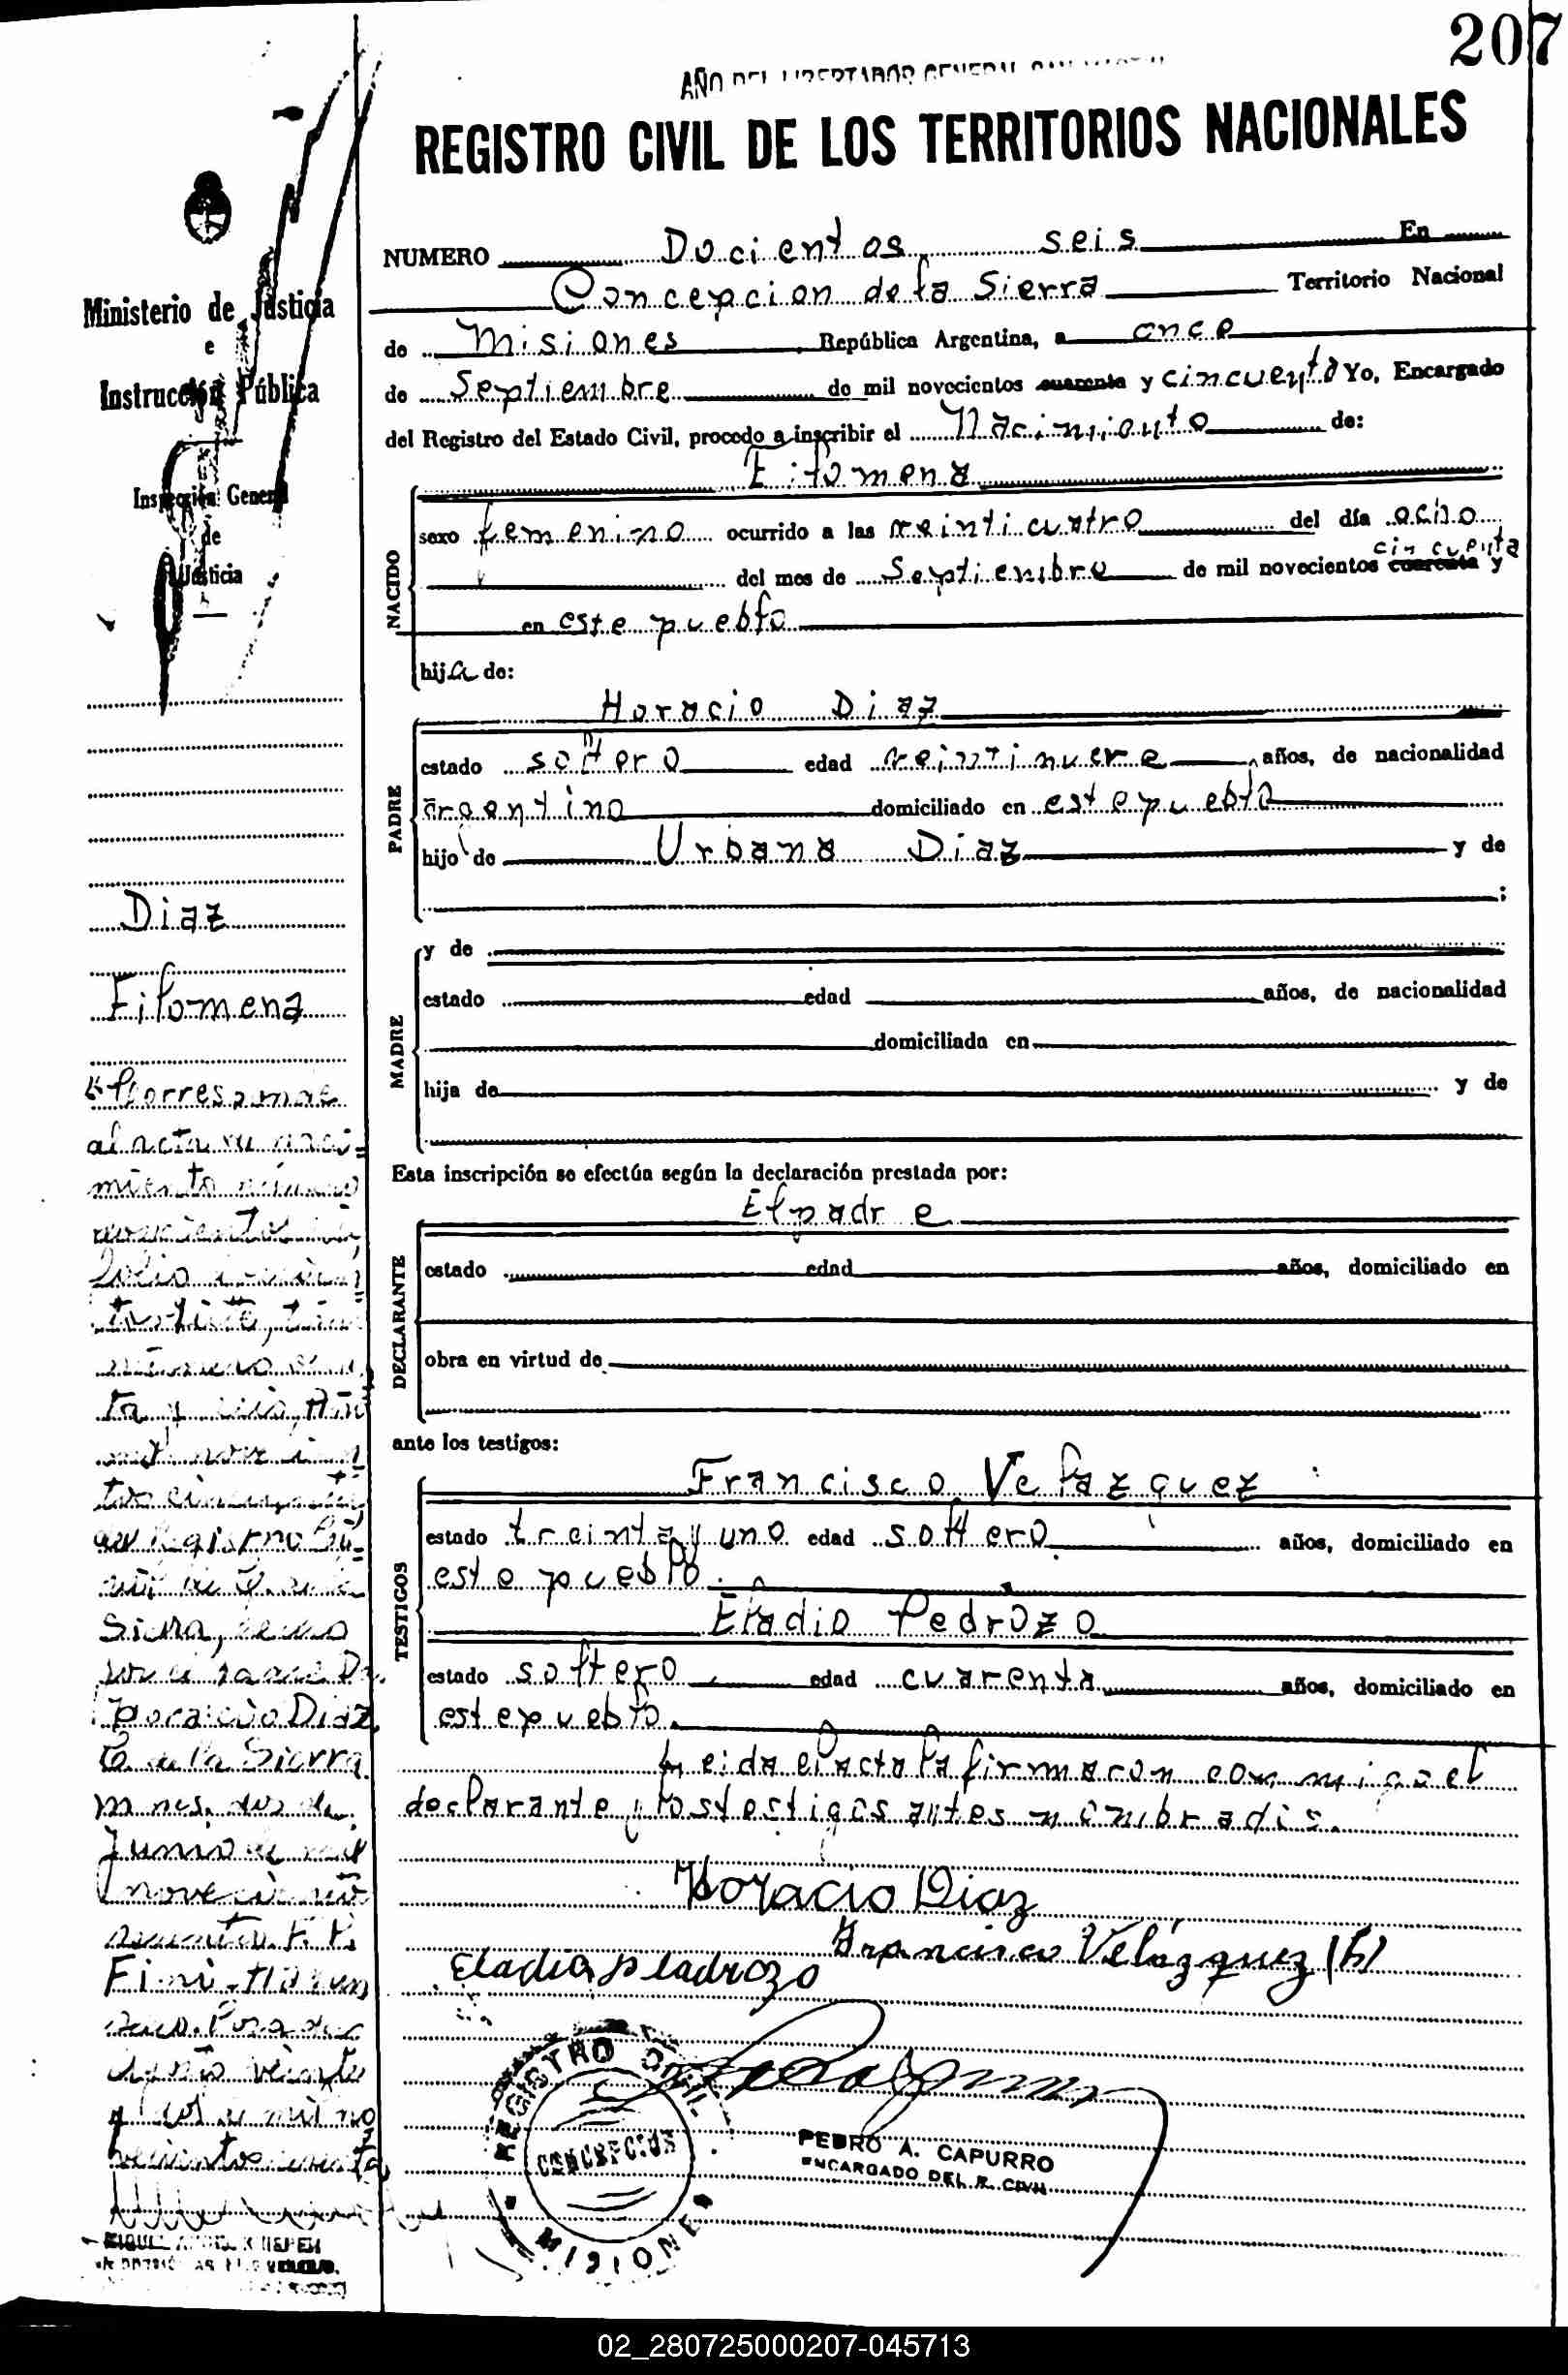 207
AÑO DEL LIBERTADOR GENERAL SAN
REGISTRO CIVIL DE LOS TERRITORIOS NACIONALES
NUMERO Docientos seis En
Concepcion de la Sierra Territorio Nacional
de Misiones República Argentina, a once
de Septiembre de mil novecientos cuarenta y cincuenta Yo, Encargado
del Registro del Estado Civil, procedo a inscribir el Nacimiento de:
NACIDO
Filomena
sexo femenino ocurrido a las veinticuatro del día ocho
cincuenta
del mes de Septiembre de mil novecientos cuarenta y
en este pueblo
hija de:
PADRE
Horacio Diaz
estado soltero edad veintinueve años, de nacionalidad
argentino domiciliado en este pueblo
hijo de Urbana Diaz y de
;
MADRE
y de
estado edad años, de nacionalidad
domiciliada en
hija de y de
Esta inscripción se efectúa según la declaración prestada por:
DECLARANTE
El padre
estado edad años, domiciliado en
obra en virtud de
ante los testigos:
TESTIGOS
Francisco Velazquez
estado treinta y uno edad soltero años, domiciliado en
este pueblo.
Eladio Pedrozo
estado soltero edad cuarenta años, domiciliado en
este pueblo.
Leida el acta la firmaron conmigo el
declarante y los testigos antes nombrados.
Horacio Diaz
Francisco Velázquez (h)
Eladio Pedrozo
REGISTRO CIVIL
CONCEPCION
MISIONES
PEDRO A. CAPURRO
ENCARGADO DEL R. CIVIL
Ministerio de Justicia
e
Instrucción Pública
Inspección General
de
Justicia
Diaz
Filomena
al acta de naci-
miento número
Año
Sierra,
Horacio Diaz
C. de la Sierra
Mnes. dos de
Junio de mil
novecientos
veinte
y mil no
vecientos
MIGUEL
02_280725000207-045713